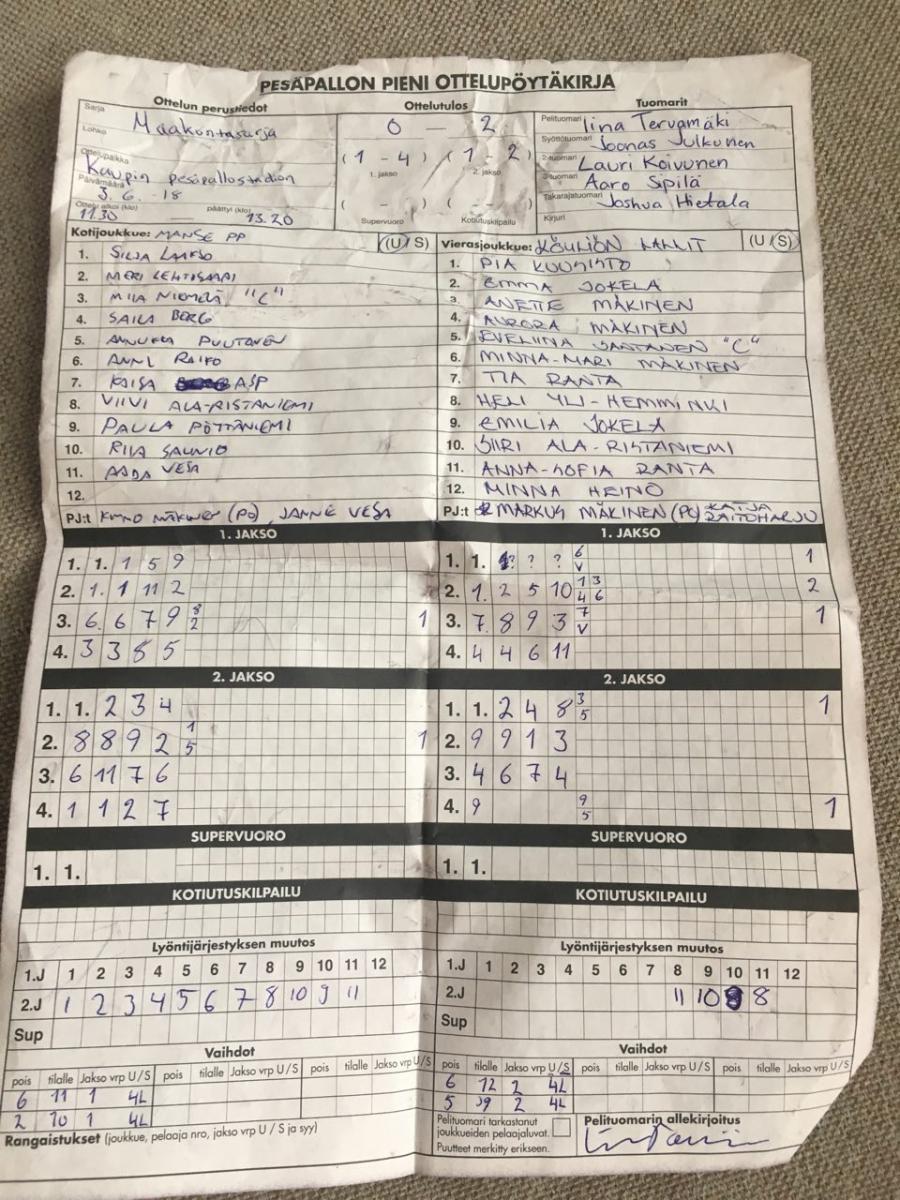 PESÄPALLON PIENI OTTELUPÖYTÄKIRJA
Ottelun perustiedot Ottelutulos Tuomarit
Sarja Maakontasarja 0 — 2 Pelituomari Iina Tervamäki
Lohko Syöttötuomari Joonas Julkunen
(1 - 4) (1 - 2) 2-tuomari Lauri Koivunen
Ottelupaikka Kaupin pesäpallostadion 1. jakso 2. jakso 3-tuomari Aaro Sipilä
Päivämäärä 3.6.-18 ( - ) ( - ) Takarajatuomari Joshua Hietala
Ottelu alkoi (klo) 11.30 — päättyi (klo) 13.20 Supervuoro Kotiutuskilpailu Kirjuri
Kotijoukkue: MANSE PP (U / S) Vierasjoukkue: KÖYLIÖN LALLIT (U / S)
1. SILJA LAAKSO 1. PIA KUUSISTO
2. MERI LEHTISAARI 2. EMMA JOKELA
3. MIIA NIEMELÄ "C" 3. ANETTE MÄKINEN
4. SAILA BERG 4. AURORA MÄKINEN
5. ANNUKKA PUUTONEN 5. EVELIINA SANTANEN "C"
6. ANNI RAIKO 6. MINNA-MARI MÄKINEN
7. KAISA ASP 7. TIA RANTA
8. VIIVI ALA-RISTANIEMI 8. HELI YLI-HEMMINKI
9. PAULA PÖTTÄNIEMI 9. EMILIA JOKELA
10. RIIA SAUNIO 10. SIIRI ALA-RISTANIEMI
11. AADA VESA 11. ANNA-SOFIA RANTA
12. 12. MINNA HEINO
PJ:t KIMMO MÄKINEN (PJ), JANNE VESA PJ:t MARKUS MÄKINEN (PJ) KATJA RAITOHARJU
1. JAKSO 1. JAKSO
1. 1. 1 5 9 1. 1. ? ? ? 6 V 1
2. 1. 1 11 2 2. 1. 2 5 10 1 3 4 6 2
3. 6 6 7 9 8 2 1 3. 7 8 9 3 7 V 1
4. 3 3 8 5 4. 4 4 6 11
2. JAKSO 2. JAKSO
1. 1. 2 3 4 1. 1. 2 4 8 3 5 1
2. 8 8 9 2 1 5 1 2. 9 9 1 3
3. 6 11 7 6 3. 4 6 7 4
4. 1 1 2 7 4. 9 9 5 1
SUPERVUORO SUPERVUORO
1. 1. 1. 1.
KOTIUTUSKILPAILU KOTIUTUSKILPAILU
Lyöntijärjestyksen muutos Lyöntijärjestyksen muutos
1.J 1 2 3 4 5 6 7 8 9 10 11 12 1.J 1 2 3 4 5 6 7 8 9 10 11 12
2.J 1 2 3 4 5 6 7 8 10 9 11 2.J 11 10 9 8
Sup Sup
Vaihdot Vaihdot
pois tilalle Jakso vrp U / S pois tilalle Jakso vrp U / S pois tilalle Jakso vrp U / S pois tilalle Jakso vrp U / S pois tilalle Jakso vrp U / S pois tilalle Jakso vrp U / S
6 11 1 4L 6 12 2 4L
2 10 1 4L 5 9 2 4L
Rangaistukset (joukkue, pelaaja nro, jakso vrp U / S ja syy) Pelituomari tarkastanut joukkueiden pelaajaluvat. Pelituomarin allekirjoitus
Puutteet merkitty erikseen.